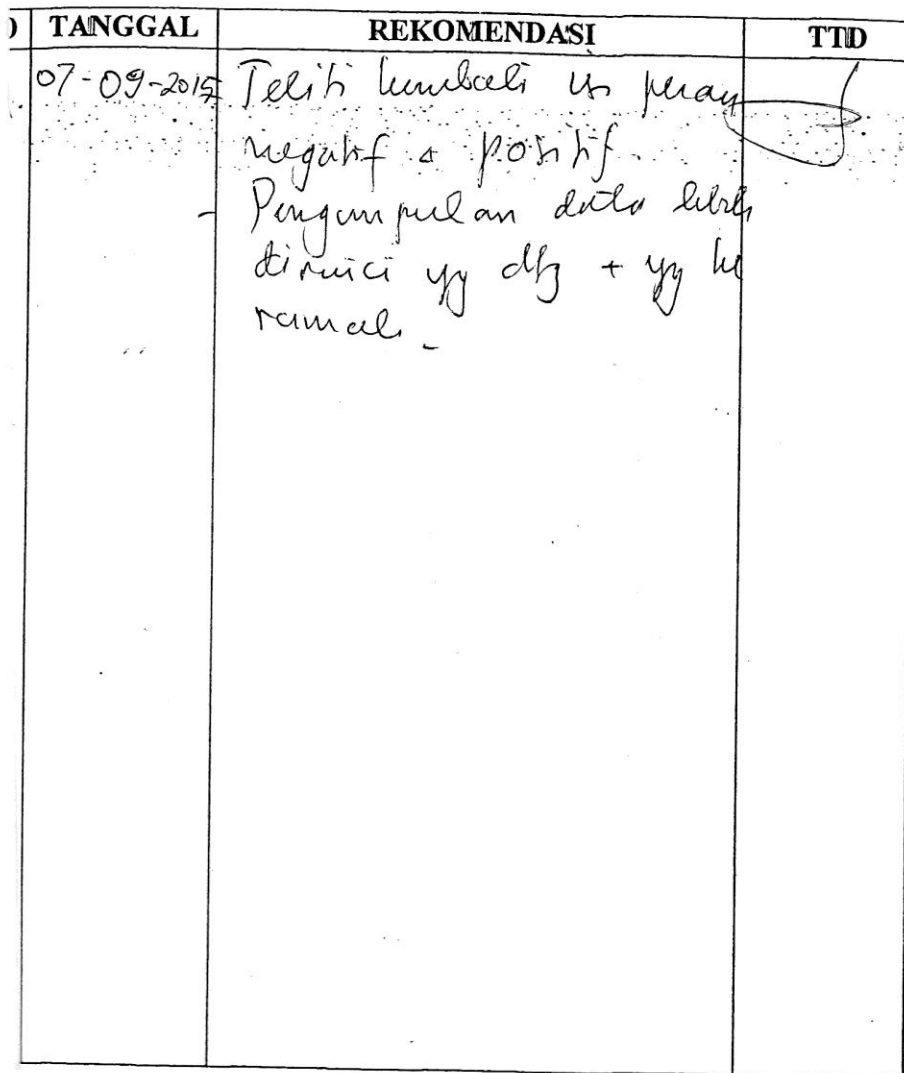 TANGGAL REKOMENDASI TTD
07-09-2015 Teliti kembali peran
negatif & positif
- Pengumpulan data lebih
dirinci yg dtg + yg ke
rumah